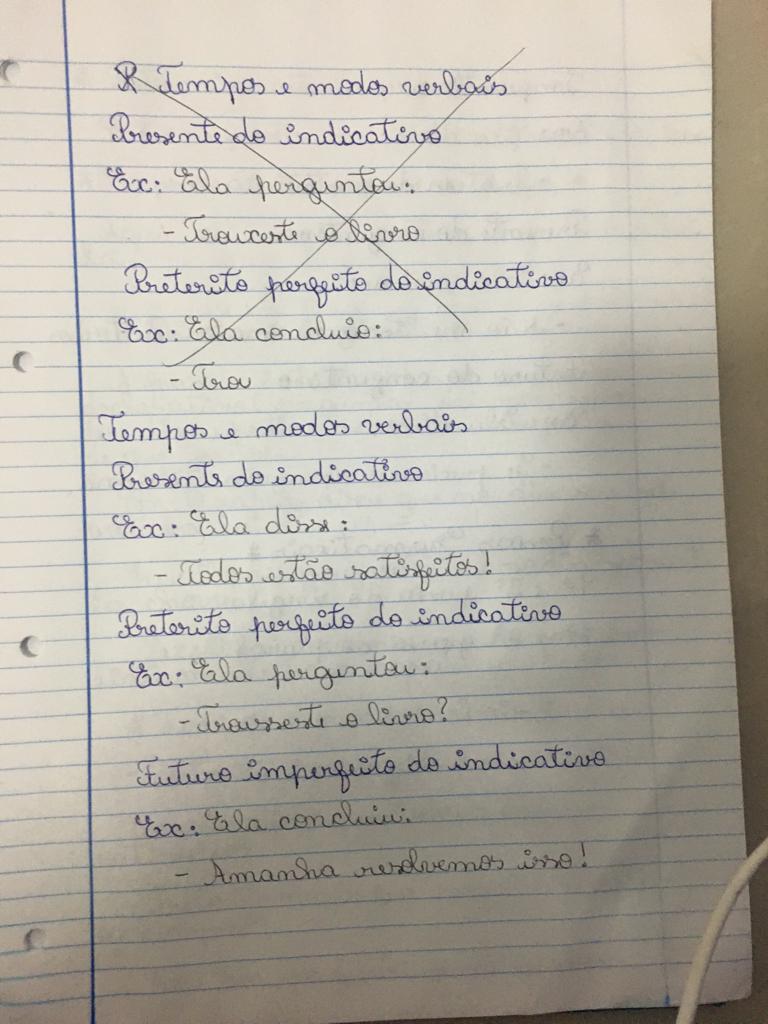 Tempos e modos verbais
Presente do indicativo
Ex: Ela perguntou:
- Trouxeste o livro
Preterito perfeito do indicativo
Ex: Ela concluio:
- Trou
Tempos e modos verbais
Presente do indicativo
Ex: Ela disse:
- Todos estão satisfeitos!
Preterito perfeito do indicativo
Ex: Ela perguntou:
- Trousseste o livro?
Futuro imperfeito do indicativo
Ex: Ela concluiu:
- Amanha resolvemos isso!